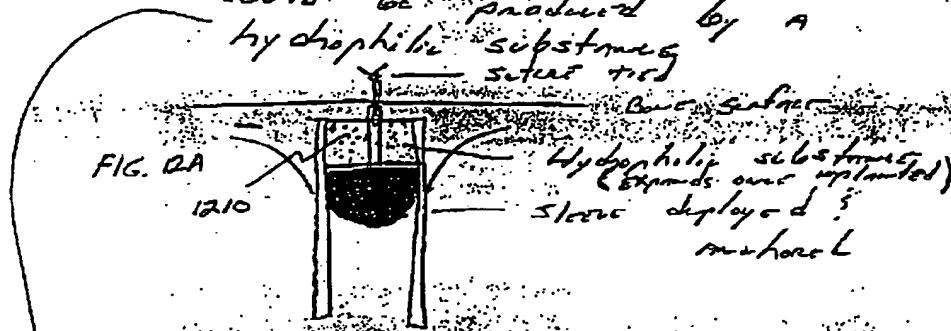 be produced by A
hydrophilic substance
suture tied
Bone surface
FIG. 12A
Hydrophilic substance
(expands once implanted)
1210
sleeve deployed &
anchored